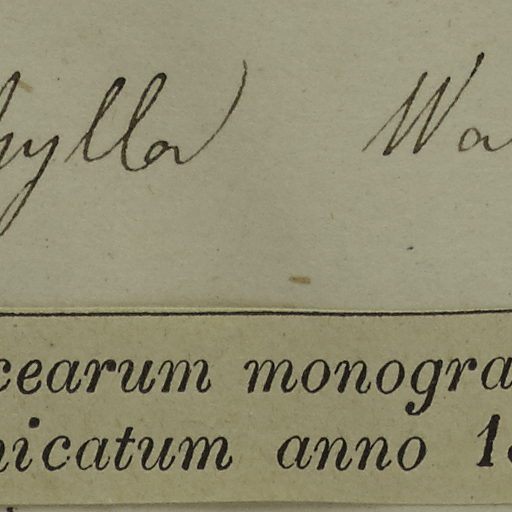 hylla Wa
cearum monogra
nicatum anno 18